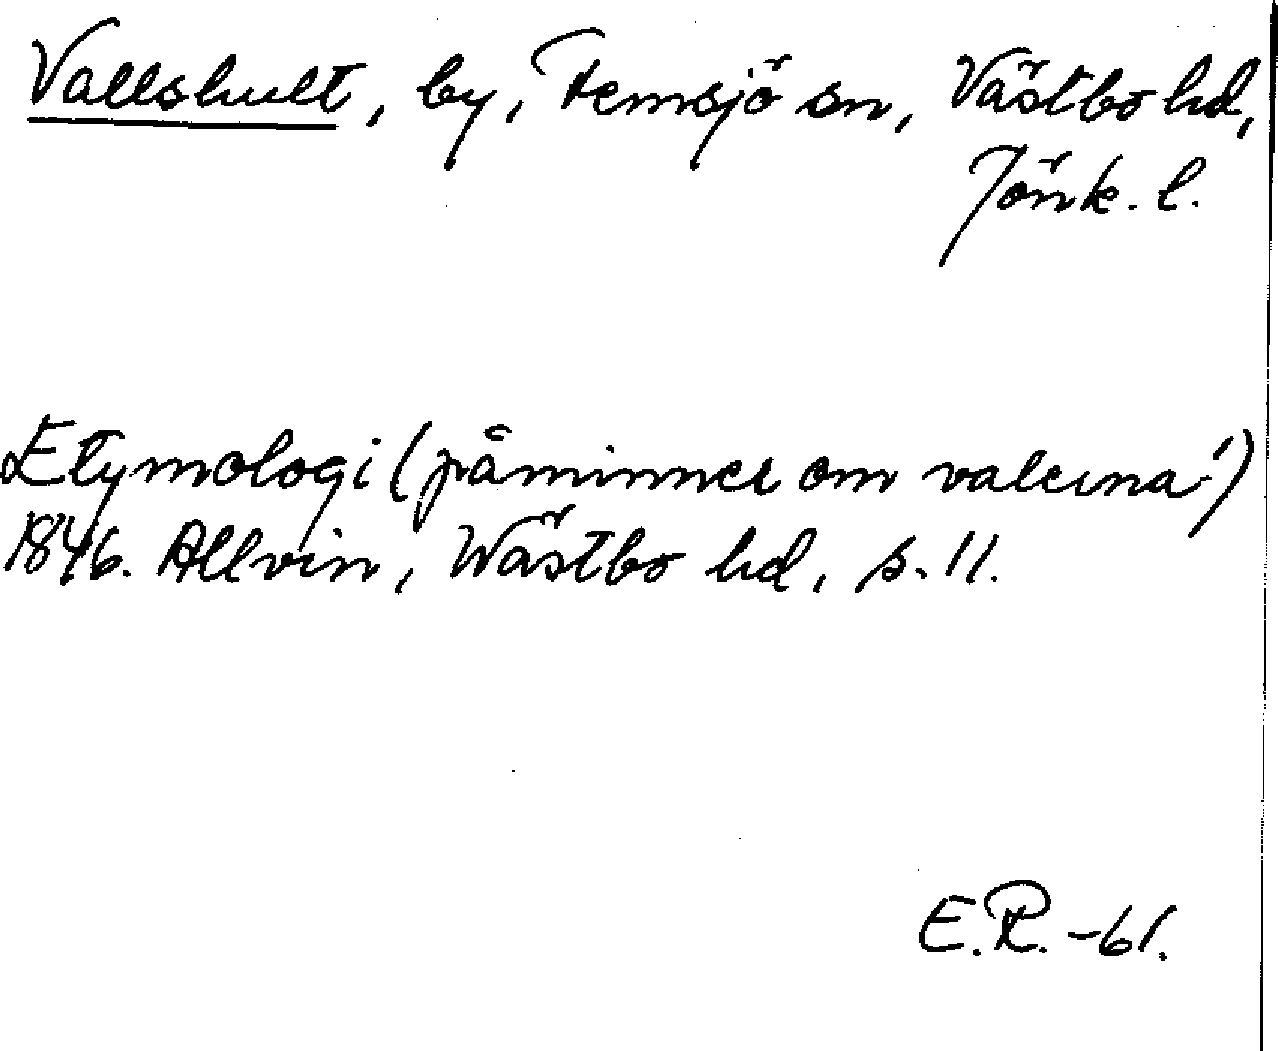 Vallshult, by, Femsjö sn, Västbo hd,
Jönk. l.
Etymologi (påminner om valerna!)
1846. Allvin, Wästbo hd, s. 11.
E.R. -61.